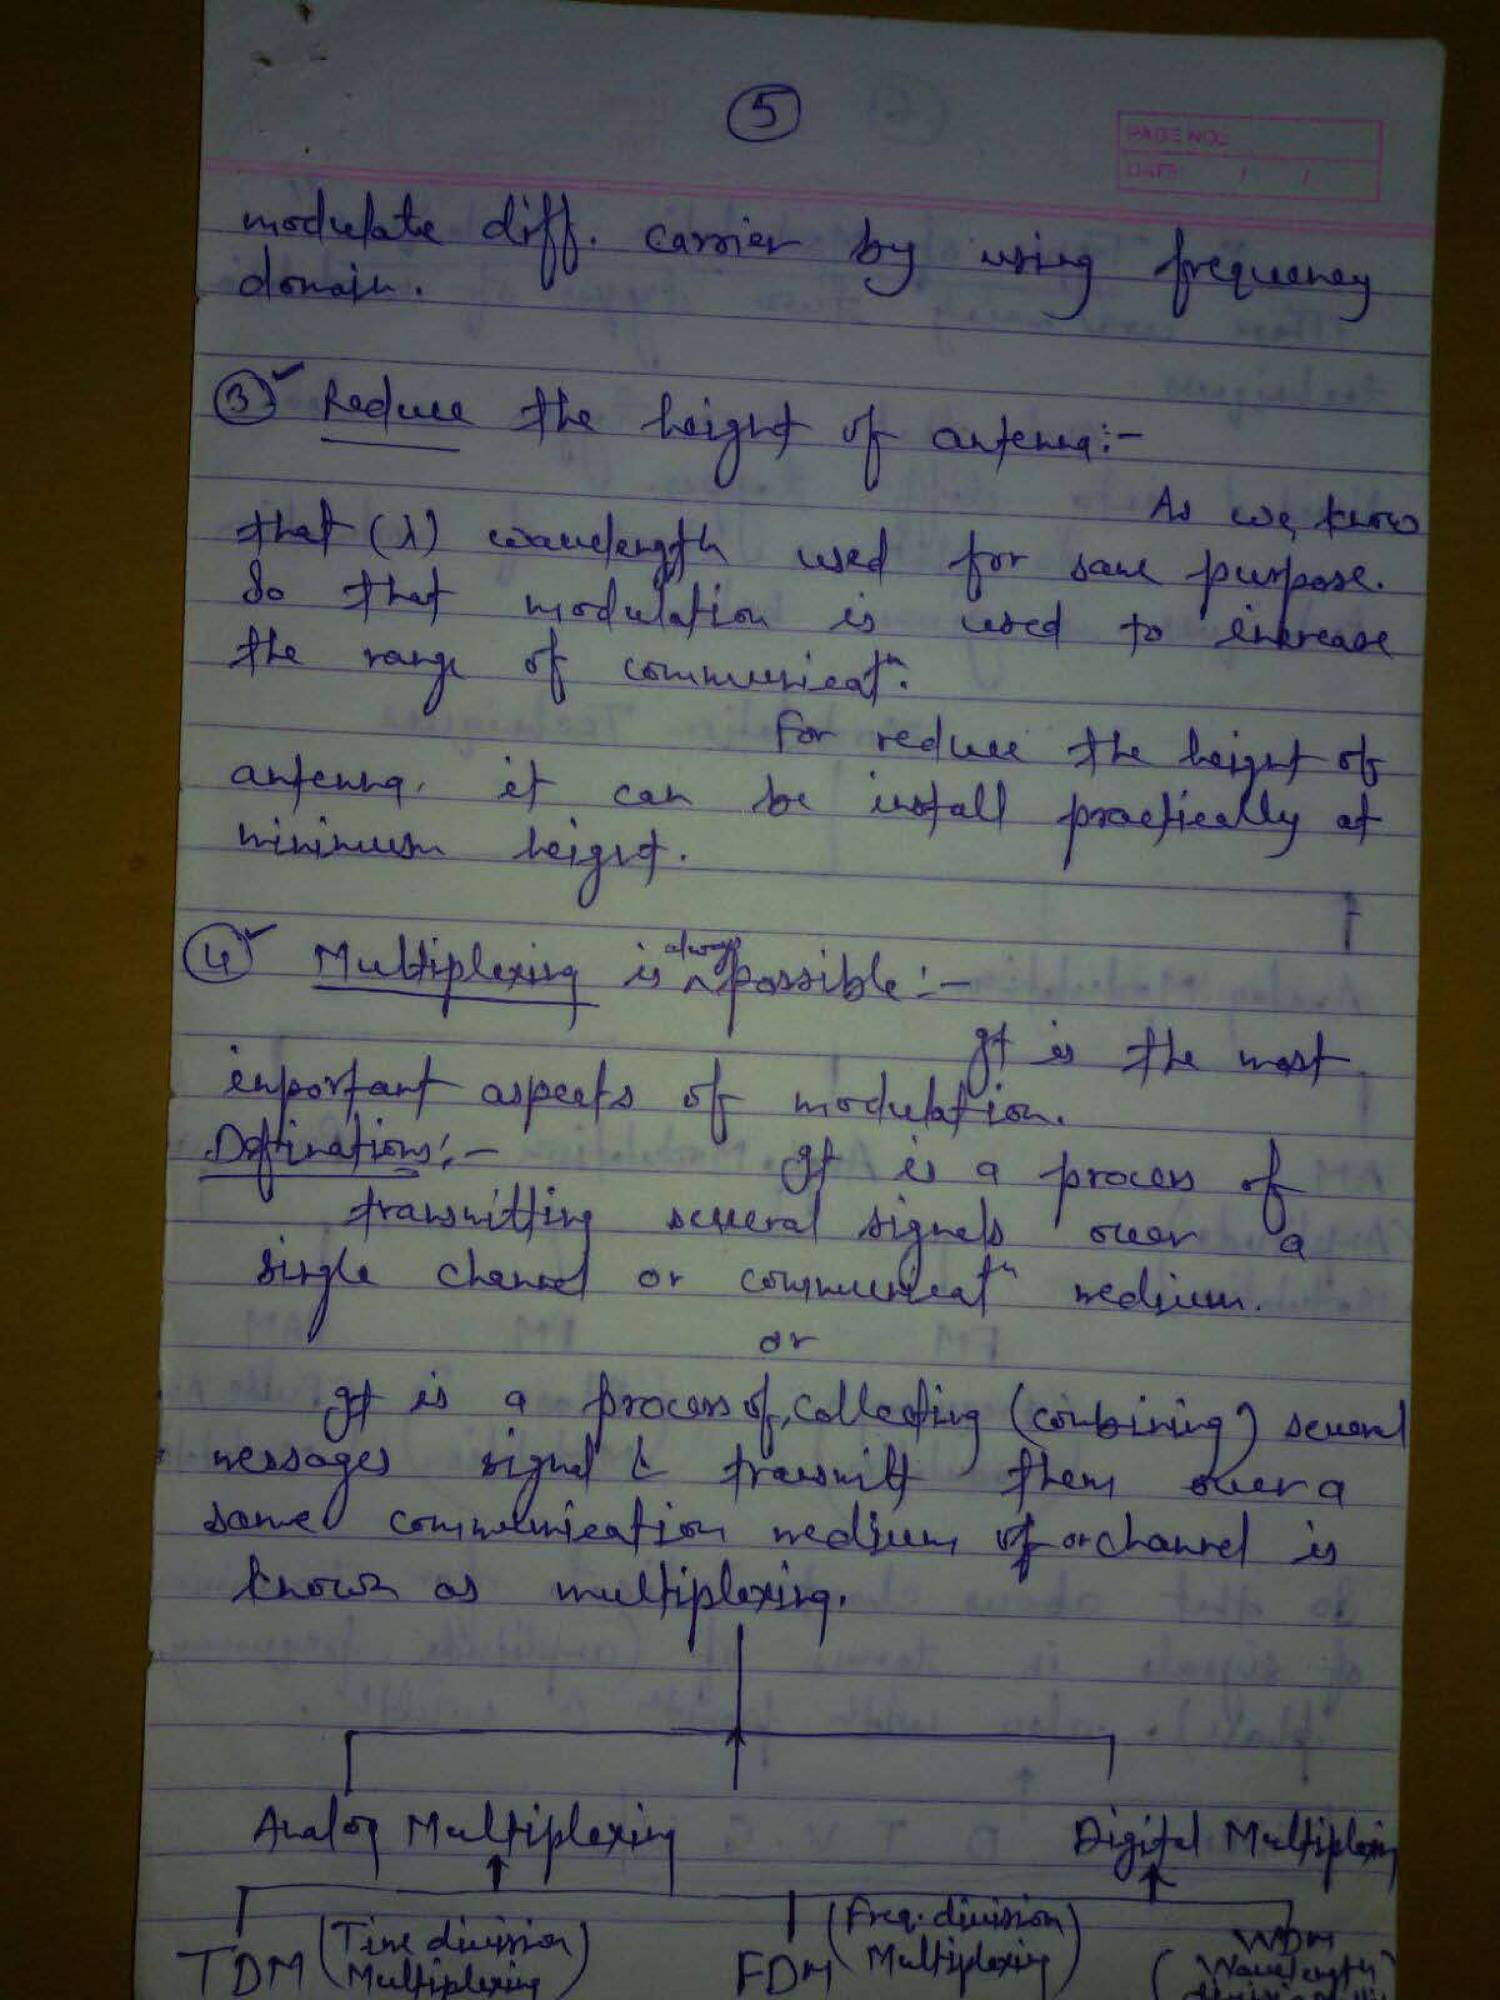 5
PAGE NO.:
DATE: / /
modulate diff. carrier by using frequency
domain.
3 Reduce the height of antenna:-
As we know
that (λ) wavelength used for same purpose.
So that modulation is used to increase
the range of communicatⁿ.
For reduce the height of
antenna. it can be install practically at
minimum height.
4 Multiplexing is always possible:-
It is the most
important aspects of modulation.
Definations:-
It is a process of
transmitting several signals over a
single channel or communicatⁿ medium.
or
It is a process of, collecting (combining) several
messages signal & transmitt them over a
same communication medium of or channel is
known as multiplexing.
Analog Multiplexing Digital Multiplexin
TDM (Time division Multiplexing) FDM (Freq. division Multiplexing) WDM (Wavelength division